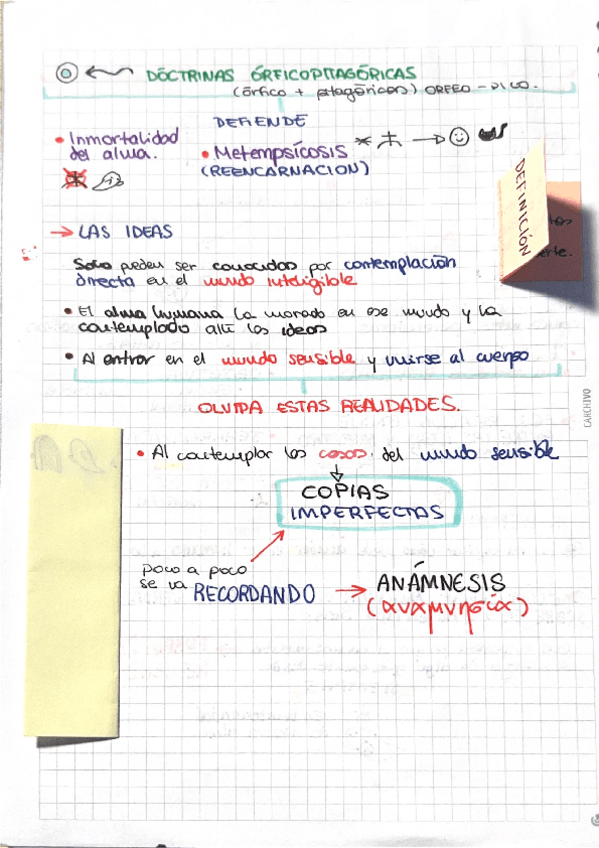 DÓCTRINAS ÓRFICOPITAGÓRICAS
(órfico + pitagóricos) ORFEO -
DEFIENDE
• Inmortalidad
del alma.
• Metempsícosis
(REENCARNACION)
DEFINICIÓN
→ LAS IDEAS
Solo pueden ser conocidas por contemplación
directa en el mundo inteligible
• El alma humana ha morado en ese mundo y ha
contemplado allí las ideas
• Al entrar en el mundo sensible y unirse al cuerpo
OLVIDA ESTAS REALIDADES.
• Al contemplar las cosas del mundo sensible
COPIAS
IMPERFECTAS
poco a poco
se va RECORDANDO → ANÁMNESIS
(αναμνησία)
CARCHIVO